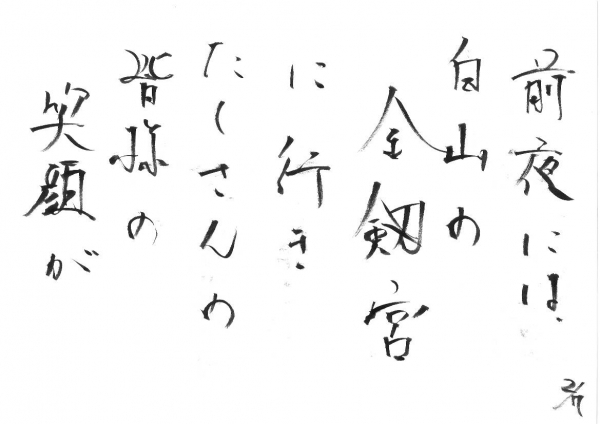 前夜には
白山の
金剱宮
に行き
たくさんの
皆様の
笑顔が
2/7